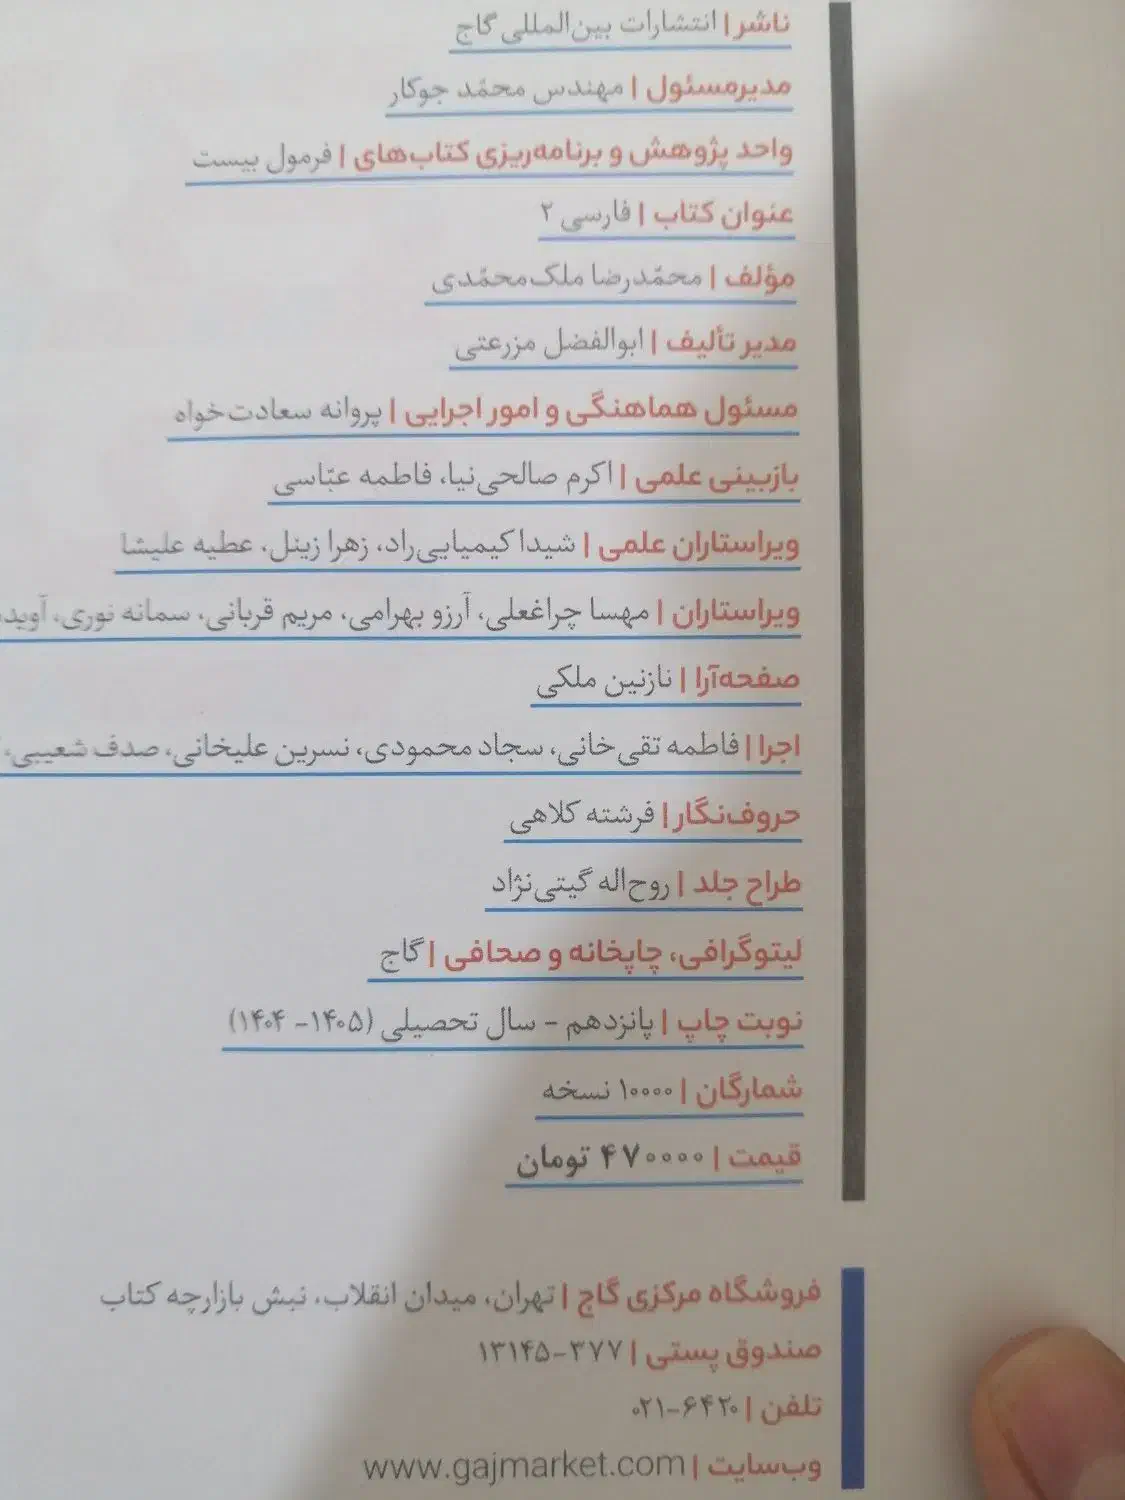 ناشر | انتشارات بین‌المللی گاج
مدیرمسئول | مهندس محمّد جوکار
واحد پژوهش و برنامه‌ریزی کتاب‌های | فرمول بیست
عنوان کتاب | فارسی ۲
مؤلف | محمّدرضا ملک‌محمّدی
مدیر تألیف | ابوالفضل مزرعتی
مسئول هماهنگی و امور اجرایی | پروانه سعادت‌خواه
بازبینی علمی | اکرم صالحی‌نیا، فاطمه عبّاسی
ویراستاران علمی | شیدا کیمیایی‌راد، زهرا زینل، عطیه علیشا
ویراستاران | مهسا چراغعلی، آرزو بهرامی، مریم قربانی، سمانه نوری،
صفحه‌آرا | نازنین ملکی
اجرا | فاطمه تقی‌خانی، سجاد محمودی، نسرین علیخانی، صدف شعیبی،
حروف‌نگار | فرشته کلاهی
طراح جلد | روح‌اله گیتی‌نژاد
لیتوگرافی، چاپخانه و صحافی | گاج
نوبت چاپ | پانزدهم - سال تحصیلی (۱۴۰۵- ۱۴۰۴)
شمارگان | ۱۰۰۰۰ نسخه
قیمت | ۴۷۰۰۰۰ تومان
فروشگاه مرکزی گاج | تهران، میدان انقلاب، نبش بازارچه کتاب
صندوق پستی | ۳۷۷-۱۳۱۴۵
تلفن | ۶۴۲۰-۰۲۱
وب‌سایت | www.gajmarket.com